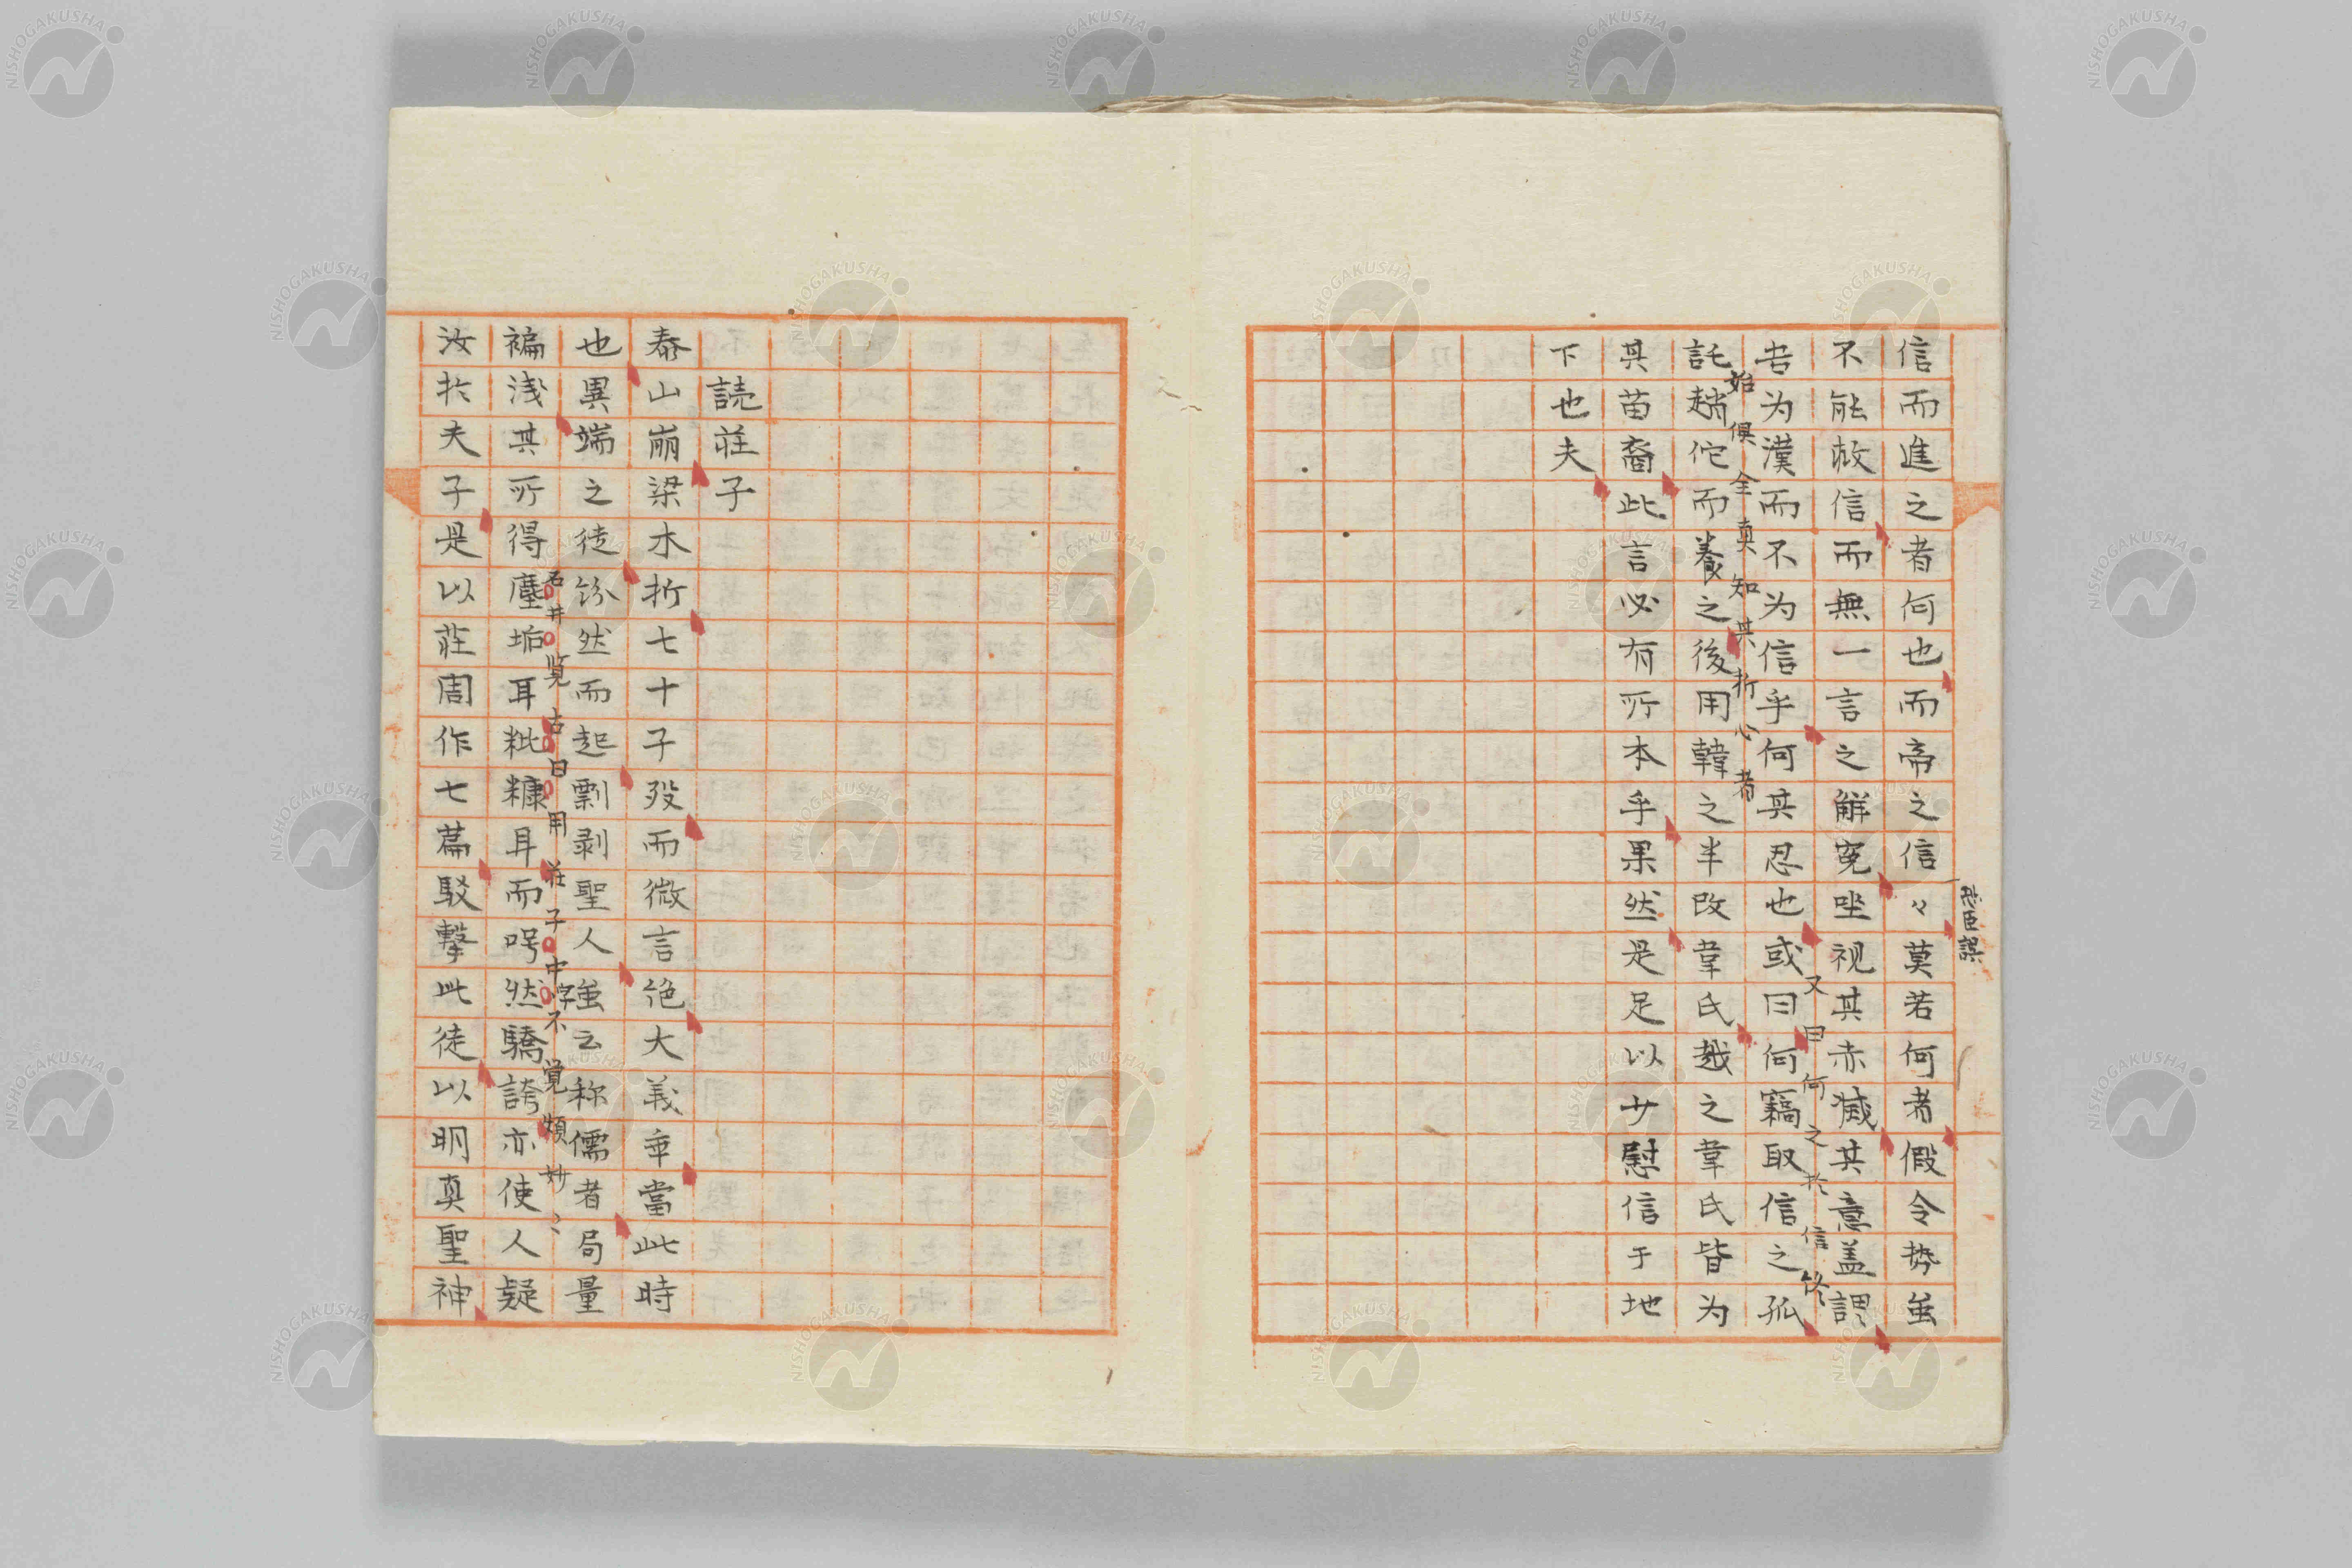 信而進之者何也而帝之信々莫若何者假令勢虽
不能救信而無一言之解寃坐视其赤滅其意盖謂
又曰何之於信
告为漢而不为信乎何其忍也或曰何竊取信之孤
始俱全真知其折心者
託趙佗而養之後用韓之半改韋氏越之韋氏皆为
其苗裔此言必有所本乎果然是足以少慰信于地
下也夫
読荘子
泰山崩梁木折七十子歿而微言絶大義乖當此時
也異端之徒紛然而起剽剥聖人虽云称儒者局量
石井覧古曰用荘子中字不覚煩妙〻
褊浅其所得塵垢耳粃糠耳而呺然驕誇亦使人疑
汝於夫子是以荘周作七篇駁撃此徒以明真聖神
NISHOGAKUSHA